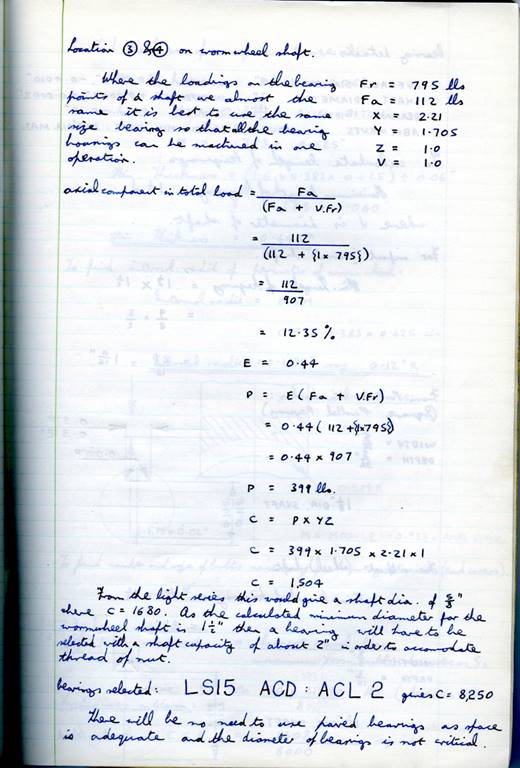 Location ③ & ④ on wormwheel shaft.
Where the loadings on the bearing Fr = 795 lbs
points of a shaft are almost the Fa = 112 lbs
same it is best to use the same X = 2.21
size bearing so that all the bearing Y = 1.705
housings can be machined in one Z = 1.0
operation. V = 1.0
axial component in total load = Fa
(Fa + V.Fr)
= 112
(112 + {1 x 795})
= 112
907
= 12.35 %
E = 0.44
P = E (Fa + V.Fr)
= 0.44 (112 + {1x795})
= 0.44 x 907
P = 399 lbs.
C = P X Y Z
C = 399 x 1.705 x 2.21 x 1
C = 1,504
From the light series this would give a shaft dia. of 5/8"
where C = 1680. As the calculated minimum diameter for the
wormwheel shaft is 1½" then a bearing will have to be
selected with a shaft capacity of about 2" in order to accomodate
thread of nut.
bearings selected: LS15 ACD : ACL 2 gives C = 8,250
There will be no need to use paired bearings as space
is adequate and the diameter of bearings is not critical.